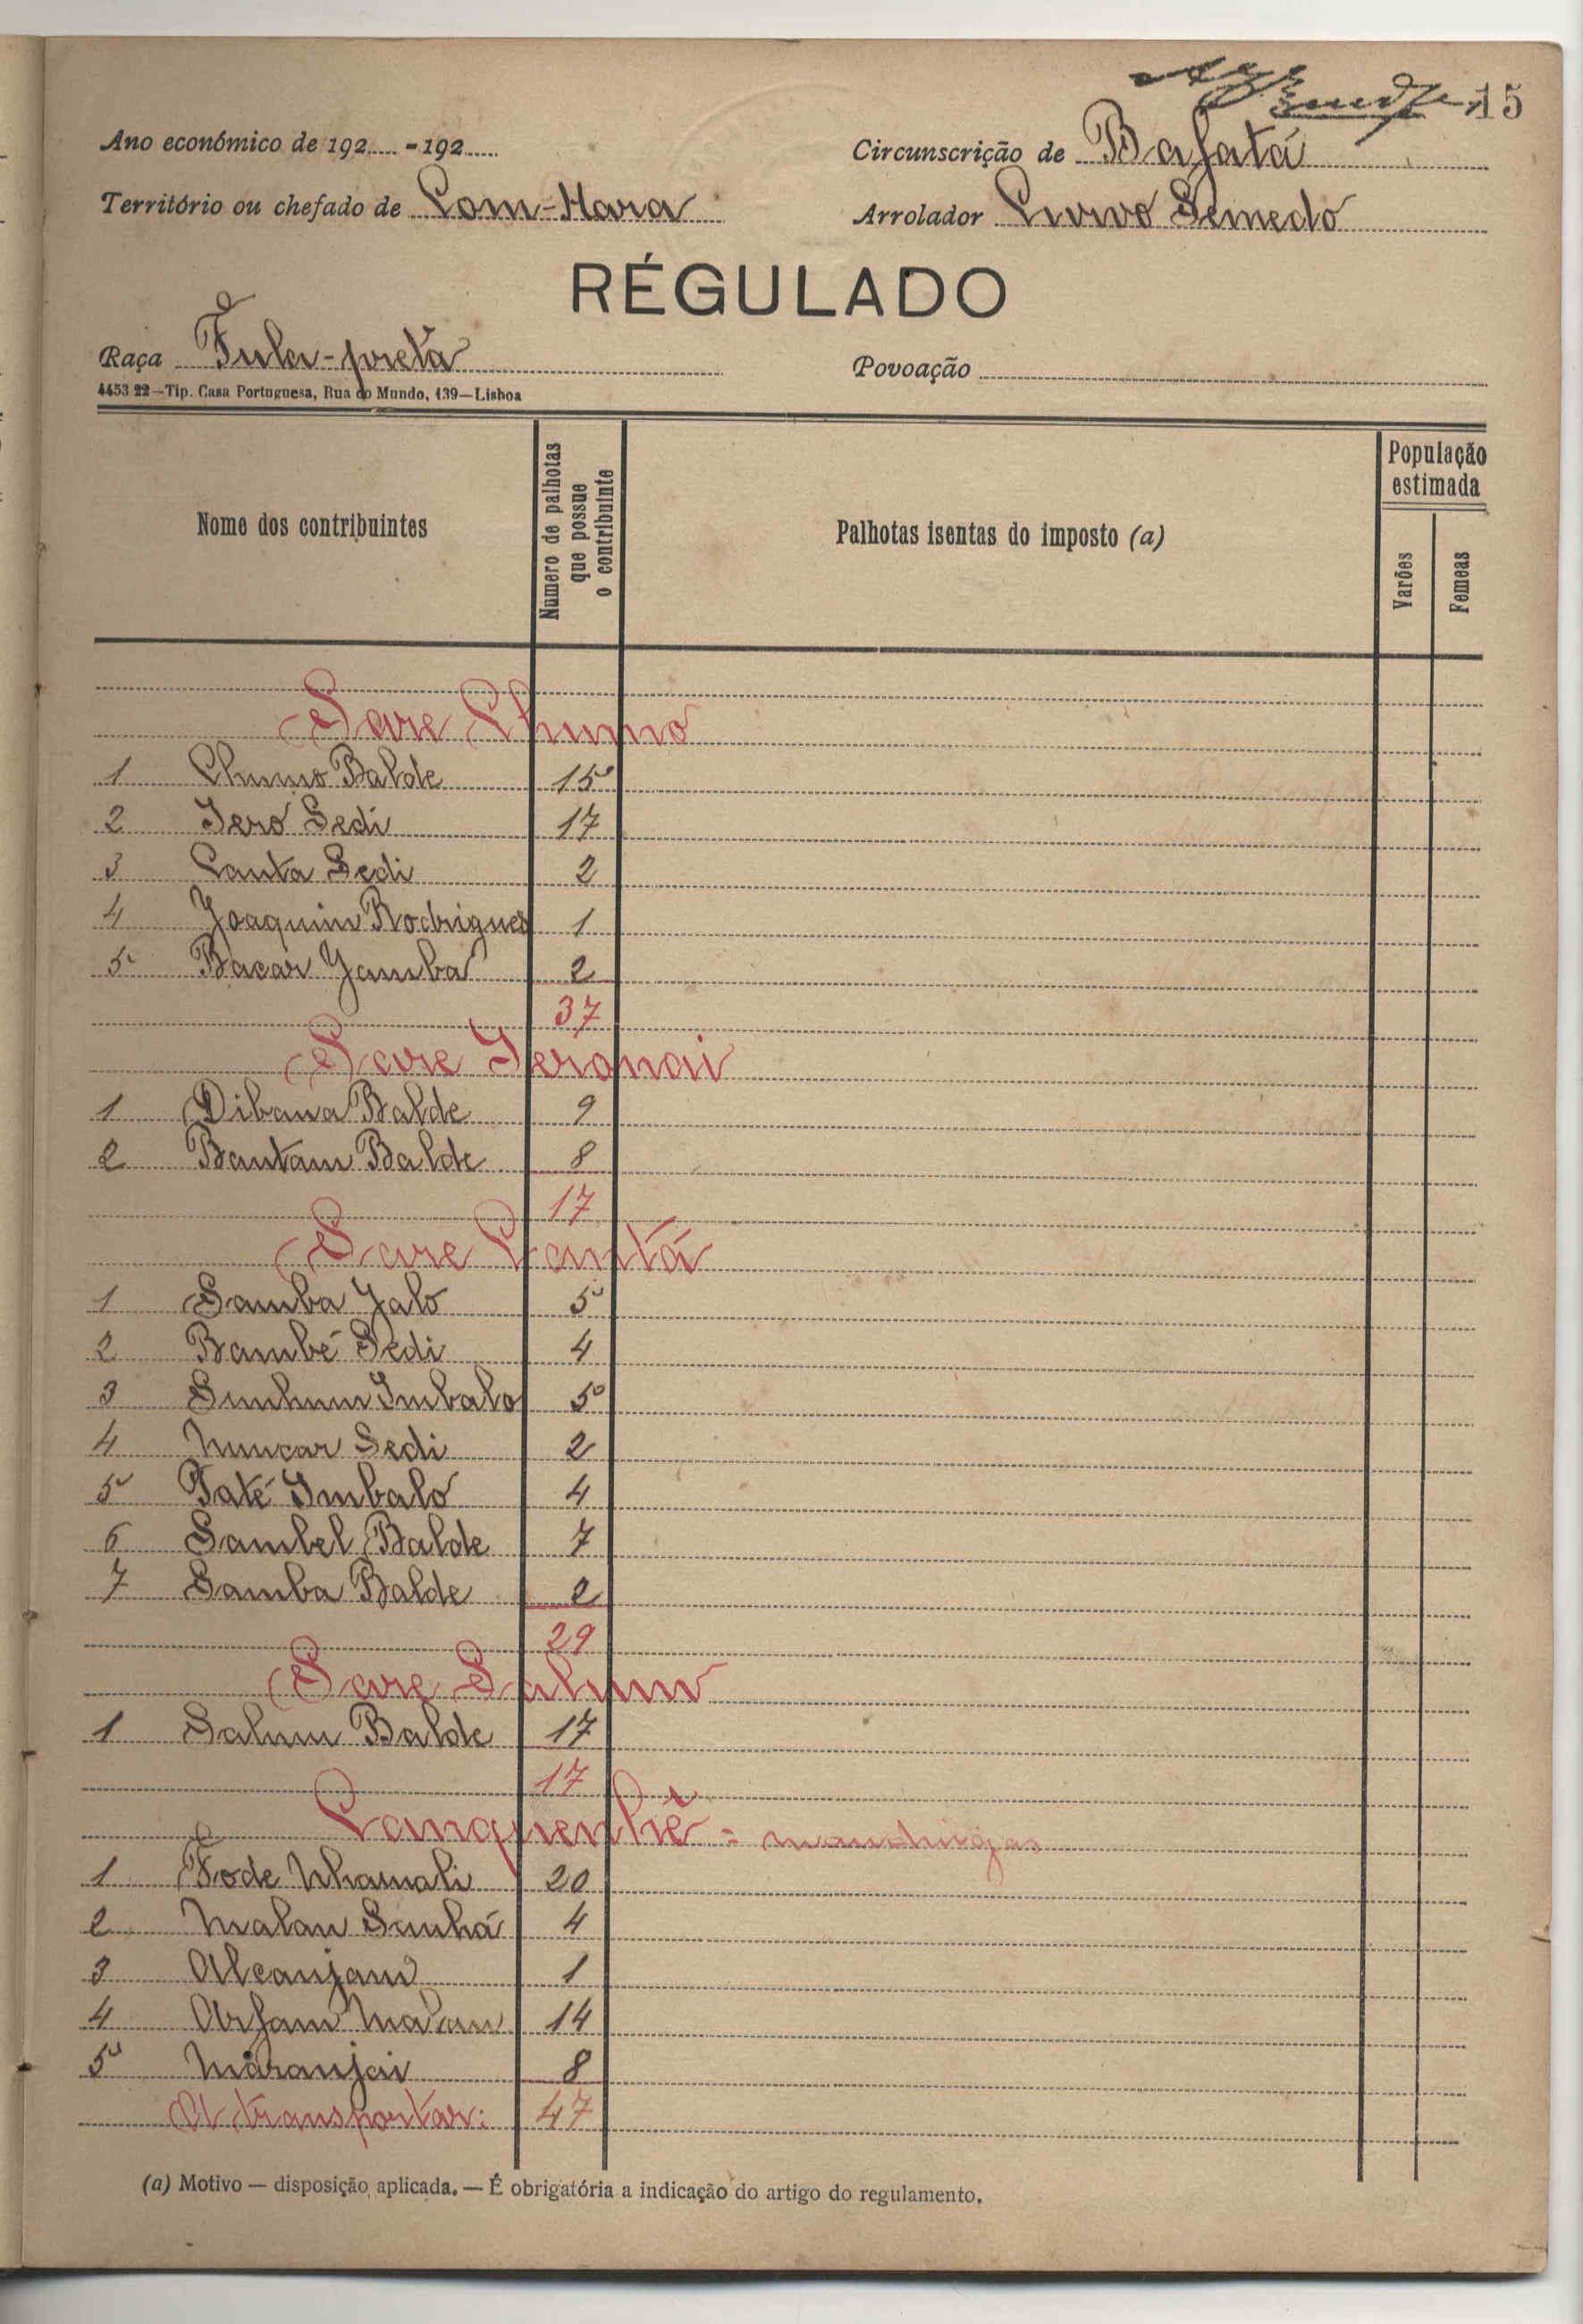 15
Ano económico de 192 - 192
Circunscrição de Bafatá
Território ou chefado de Com-Hara
Arrolador Semedo
RÉGULADO
Raça Fula-preta
Povoação
4453 22—Tip. Casa Portuguesa, Rua do Mundo, 139—Lisboa
Nome dos contribuintes
Numero de palhotas que possue o contribuinte
Palhotas isentas do imposto (a)
População estimada
Varões
Femeas
Sare Chumo
1 Chumo Balde 15
2 Jeró Sedi 17
3 Canta Sedi 2
4 Joaquim Rodrigues 1
5 Bacar Jamba 2
37
Sare Jeronai
1 Dibana Balde 9
2 Bantam Balde 8
17
Sare Cantá
1 Samba Jaló 5
2 Bambé Sedi 4
3 Sunhum Imbaló 5
4 Nuncar Sedi 2
5 Paté Imbaló 4
6 Sambel Balde 7
7 Samba Balde 2
29
Sare Salum
1 Salum Balde 17
17
Canquenhé - mandingas
1 Fode Nhamali 20
2 Malan Sanhá 4
3 Alcanjam 1
4 Arfam Malan 14
5 Maranjai 8
A transportar: 47
(a) Motivo — disposição aplicada. — É obrigatória a indicação do artigo do regulamento.